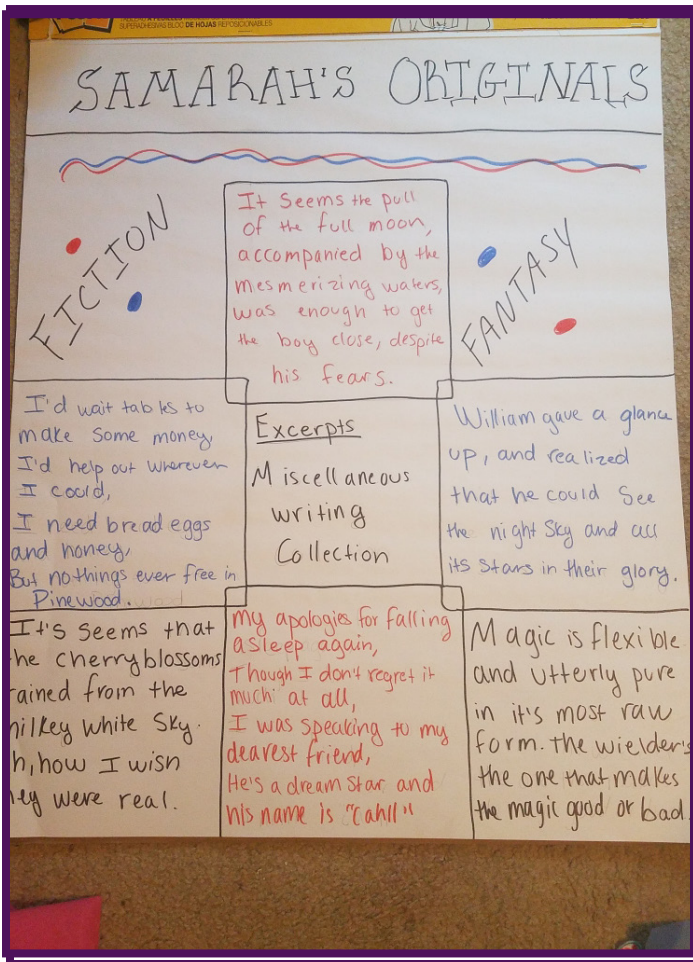 SUPERADHESIVAS BLOC DE HOJAS REPOSICIONABLES
SAMARAH'S ORIGINALS
FICTION
It seems the pull
of the full moon,
accompanied by the
mesmerizing waters,
was enough to get
the boy close, despite
his fears.
FANTASY
I'd wait tables to
make some money,
I'd help out wherever
I could,
I need bread eggs
and honey,
But nothings ever free in
Pinewood.
Excerpts
Miscellaneous
writing
Collection
William gave a glance
up, and realized
that he could see
the night sky and all
its stars in their glory.
It's seems that
he cherryblossoms
rained from the
milkey white sky.
h, how I wish
hey were real.
my apologies for falling
asleep again,
Though I don't regret it
much at all,
I was speaking to my
dearest friend,
He's a dream star and
his name is "Cahll"
Magic is flexible
and utterly pure
in it's most raw
form. The wielder's
the one that makes
the magic good or bad.